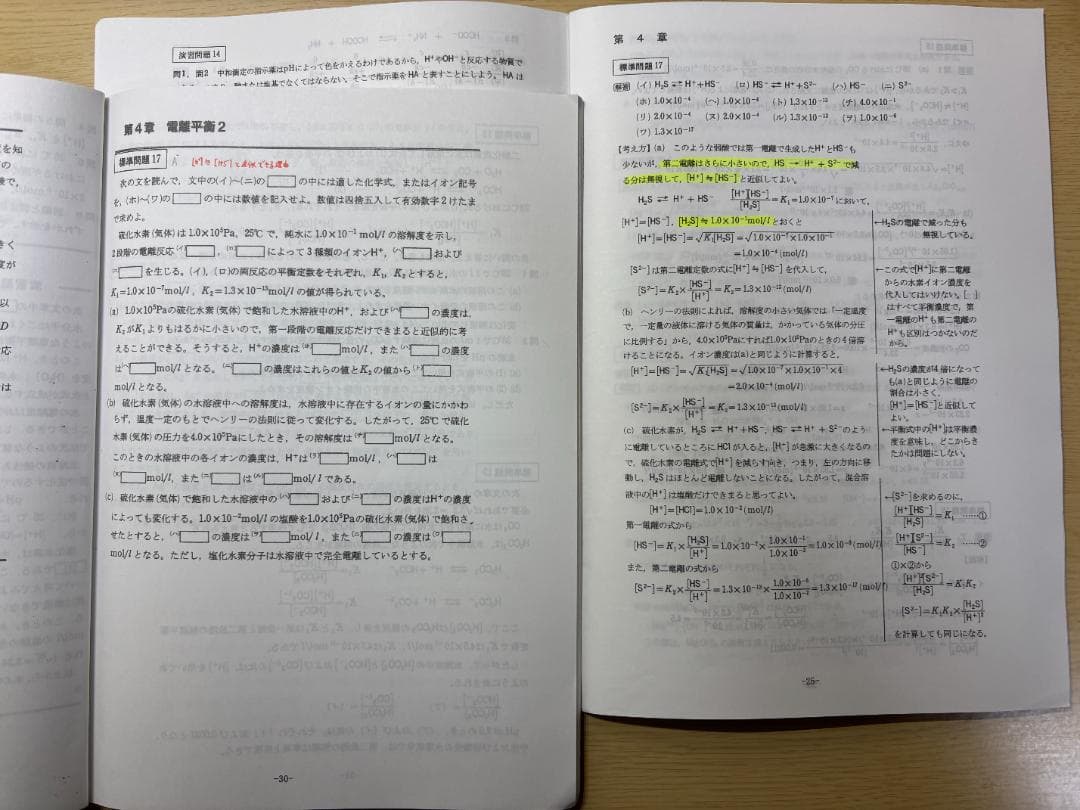 演習問題14
問1，問2 中和滴定の指示薬はpHによって色をかえるわけであるから，H⁺やOH⁻と反応する物質で
第4章 電離平衡2
標準問題17
次の文を読んで，文中の(イ)～(ニ)の□の中には適した化学式，またはイオン記号
を，(ホ)～(ワ)の□の中には数値を記入せよ。数値は四捨五入して有効数字2けたま
で求めよ。
硫化水素(気体)は1.0×10⁵Pa，25℃で，純水に1.0×10⁻¹ mol/lの溶解度を示し，
2段階の電離反応(イ)□，(ロ)□によって3種類のイオンH⁺，(ハ)□および
(ニ)□を生じる。(イ)，(ロ)の両反応の平衡定数をそれぞれ，K₁，K₂とすると，
K₁=1.0×10⁻⁷mol/l，K₂=1.3×10⁻¹³mol/lの値が得られている。
(a) 1.0×10⁵Paの硫化水素(気体)で飽和した水溶液中のH⁺，および(ハ)□の濃度は，
K₂がK₁よりもはるかに小さいので，第一段階の電離反応だけできまると近似的に考
えることができる。そうすると，H⁺の濃度は(ホ)□mol/l，また(ハ)□の濃度
は(ヘ)□mol/lとなる。(ニ)□の濃度はこれらの値とK₂の値から(ト)□
mol/lとなる。
(b) 硫化水素(気体)の水溶液中への溶解度は，水溶液中に存在するイオンの量にかかわ
らず，温度一定のもとでヘンリーの法則に従って変化する。したがって，25℃で硫化
水素(気体)の圧力を4.0×10⁵Paにしたとき，その溶解度は(チ)□mol/lとなる。
このときの水溶液中の各イオンの濃度は，H⁺は(リ)□mol/l，(ハ)□は
(ヌ)□mol/l，また(ニ)□は(ル)□mol/lである。
(c) 硫化水素(気体)で飽和した水溶液中の(ハ)□および(ニ)□の濃度はH⁺の濃度
によっても変化する。1.0×10⁻²mol/lの塩酸を1.0×10⁵Paの硫化水素(気体)で飽和さ
せたとすると，(ハ)□の濃度は(ヲ)□mol/l，また(ニ)□の濃度は(ワ)□
mol/lとなる。ただし，塩化水素分子は水溶液中で完全電離しているとする。
-30-
第 4 章
標準問題17
[解答] (イ) H₂S ⇄ H⁺+HS⁻ (ロ) HS⁻ ⇄ H⁺+S²⁻ (ハ) HS⁻ (ニ) S²⁻
(ホ) 1.0×10⁻⁴ (ヘ) 1.0×10⁻⁴ (ト) 1.3×10⁻¹³ (チ) 4.0×10⁻¹
(リ) 2.0×10⁻⁴ (ヌ) 2.0×10⁻⁴ (ル) 1.3×10⁻¹³ (ヲ) 1.0×10⁻⁶
(ワ) 1.3×10⁻¹⁷
【考え方】(a) このような弱酸では第一電離で生成したH⁺とHS⁻も
少ないが，第二電離はさらに小さいので，HS⁻ → H⁺ + S²⁻で減
る分は無視して，[H⁺]≒[HS⁻]と近似してよい。
H₂S ⇄ H⁺ + HS⁻ [H⁺][HS⁻]/[H₂S]=K₁=1.0×10⁻⁷において，
[H⁺]=[HS⁻]，[H₂S]≒1.0×10⁻¹mol/lとおくと
[H⁺]=[HS⁻]=√K₁[H₂S]=√1.0×10⁻⁷×1.0×10⁻¹
=1.0×10⁻⁴(mol/l)
[S²⁻]は第二電離定数の式に[H⁺]≒[HS⁻]を代入して，
[S²⁻]=K₂×[HS⁻]/[H⁺]=K₂=1.3×10⁻¹³(mol/l)
(b) ヘンリーの法則によれば，溶解度の小さい気体では「一定温度
で，一定量の液体に溶ける気体の質量は，かかっている気体の分圧
に比例する」から，4.0×10⁵Paにすれば1.0×10⁵Paのときの4倍溶
けることになる。イオン濃度は(a)と同じように計算すると，
[H⁺]=[HS⁻]=√K₁[H₂S]=√1.0×10⁻⁷×1.0×10⁻¹×4
=2.0×10⁻⁴(mol/l)
[S²⁻]=K₂×[HS⁻]/[H⁺]=K₂=1.3×10⁻¹³(mol/l)
(c) 硫化水素が，H₂S ⇄ H⁺+HS⁻，HS⁻ ⇄ H⁺+S²⁻のよう
に電離しているところにHClが入ると，[H⁺]が急激に大きくなるの
で，硫化水素の電離式で[H⁺]を減らす向き，つまり，左の方向に移
動し，H₂Sはほとんど電離しないことになる。したがって，混合溶
液中の[H⁺]は塩酸だけできまると思ってよい。
[H⁺]=[HCl]=1.0×10⁻²(mol/l)
第一電離の式から
[HS⁻]=K₁×[H₂S]/[H⁺]=1.0×10⁻⁷×1.0×10⁻¹/1.0×10⁻²=1.0×10⁻⁶(mol/l)
また，第二電離の式から
[S²⁻]=K₂×[HS⁻]/[H⁺]=1.3×10⁻¹³×1.0×10⁻⁶/1.0×10⁻²=1.3×10⁻¹⁷(mol/l)
←HS⁻の電離で減った分も
無視している。
←この式で[H⁺]に第二電離
からの水素イオン濃度を
代入してはいけない。[ ]
はすべて平衡濃度で，第
一電離のH⁺も第二電離の
H⁺も区別はつかないのだ
から。
←H₂Sの濃度が4倍になって
も(a)と同じように電離の
割合は小さく，
[H⁺]≒[HS⁻]と近似して
よい。
←平衡式中の[H⁺]は平衡濃
度を意味し，どこからき
たかは問題にしない。
←[S²⁻]を求めるのに，
[H⁺][HS⁻]/[H₂S]=K₁ ……①
[H⁺][S²⁻]/[HS⁻]=K₂ ……②
①×②から
[H⁺]²[S²⁻]/[H₂S]=K₁K₂
[S²⁻]=K₁K₂×[H₂S]/[H⁺]²
を計算しても同じになる。
-25-